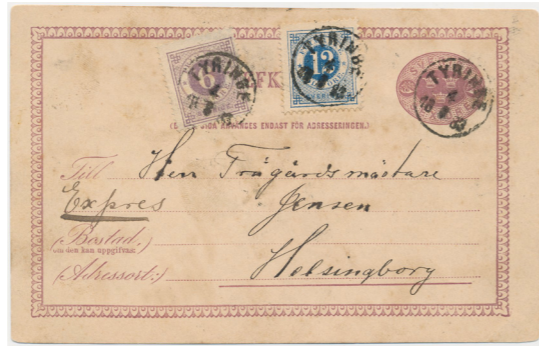 6
12
TYRINGE
TYRINGE
TYRINGE
ENDAST FÖR ADRESSERINGEN.)
Till Herr Trägårdsmästare
Expres Jensen
(Bostad:)
om den kan uppgifvas
(Adressort:) Helsingborg